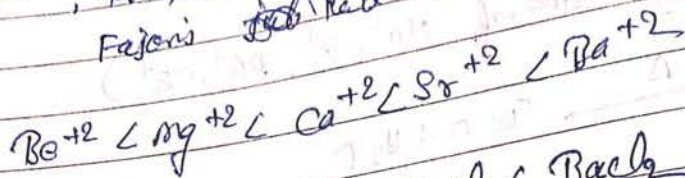 Fajan's
Be+2 < Mg+2 < Ca+2 < Sr+2 < Ba+2
< BaCl2